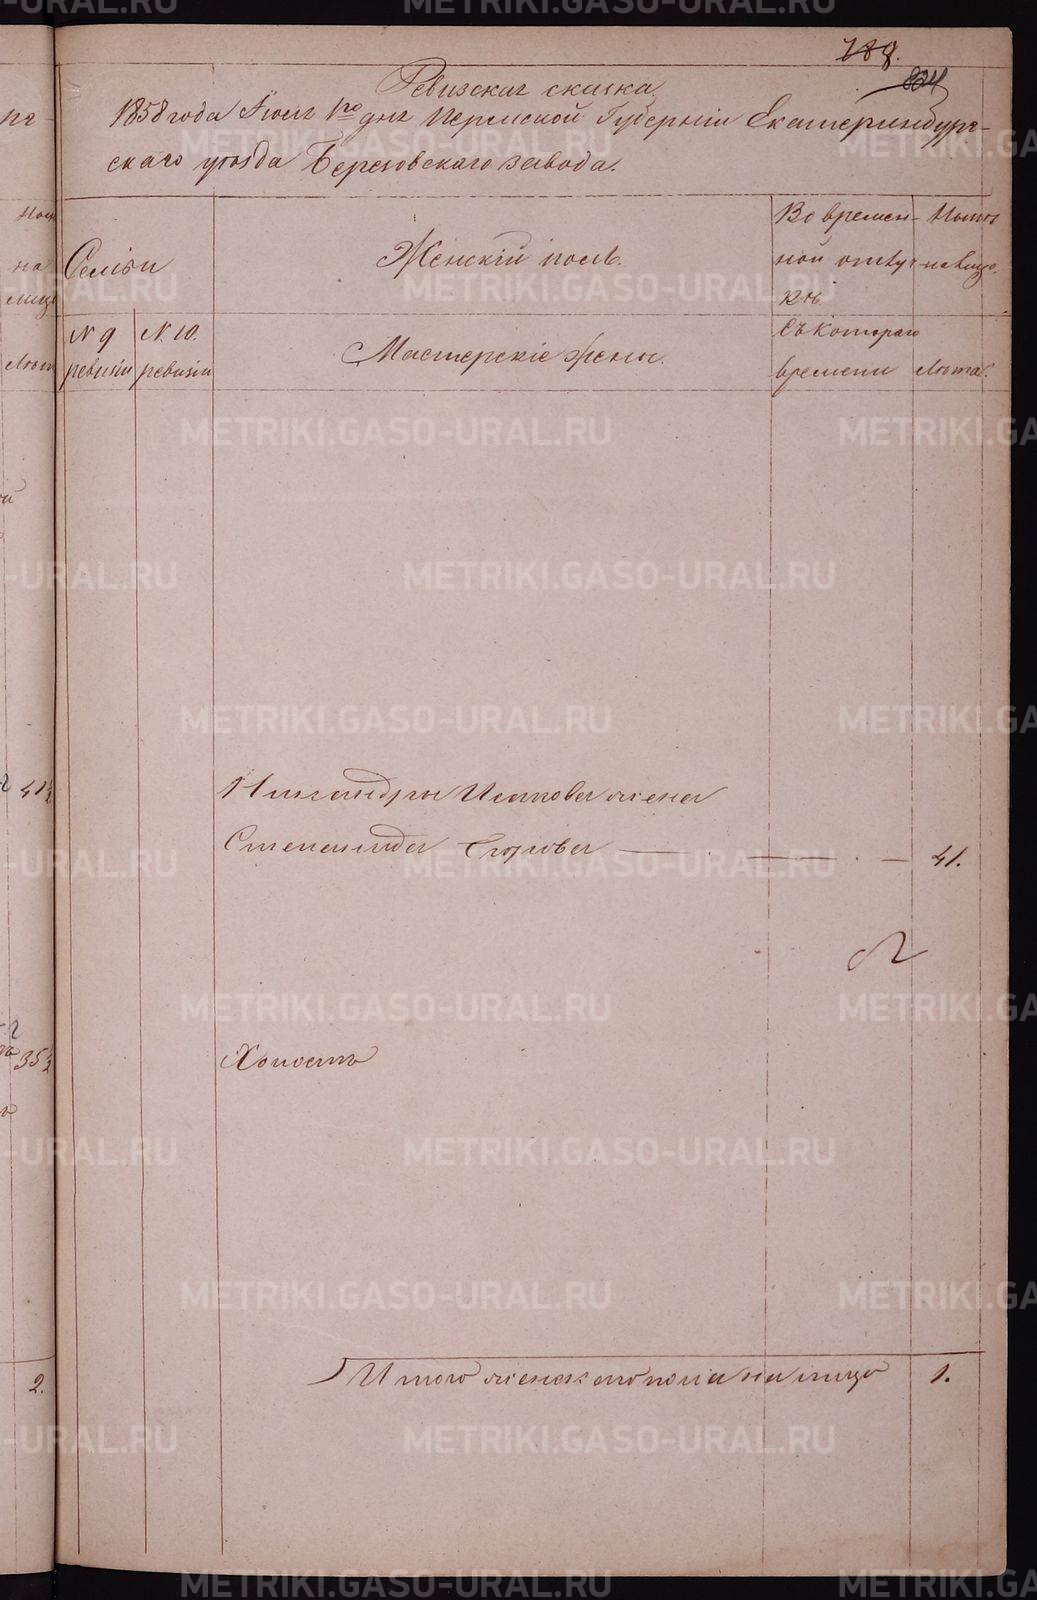 788.
804
Ревизская сказка
1858 года Июля 1го дня Пермской Губерніи Екатеринбург-
скаго уѣзда Березовскаго завода.
Семьи
Женскій полъ.
Во времен-
ной отлуч-
кѣ
Ныне
на лицо.
№ 9
ревизіи
№ 10.
ревизіи
Мастерскіе жены.
Съ котораго
времени
Лѣта.
на
лицо
Никандры Исакова жена
Степанида Егорова — — — 41.
41½
35½
Холостъ
Итого женскаго пола на лицо 1.
2.
METRIKI.GASO-URAL.RU